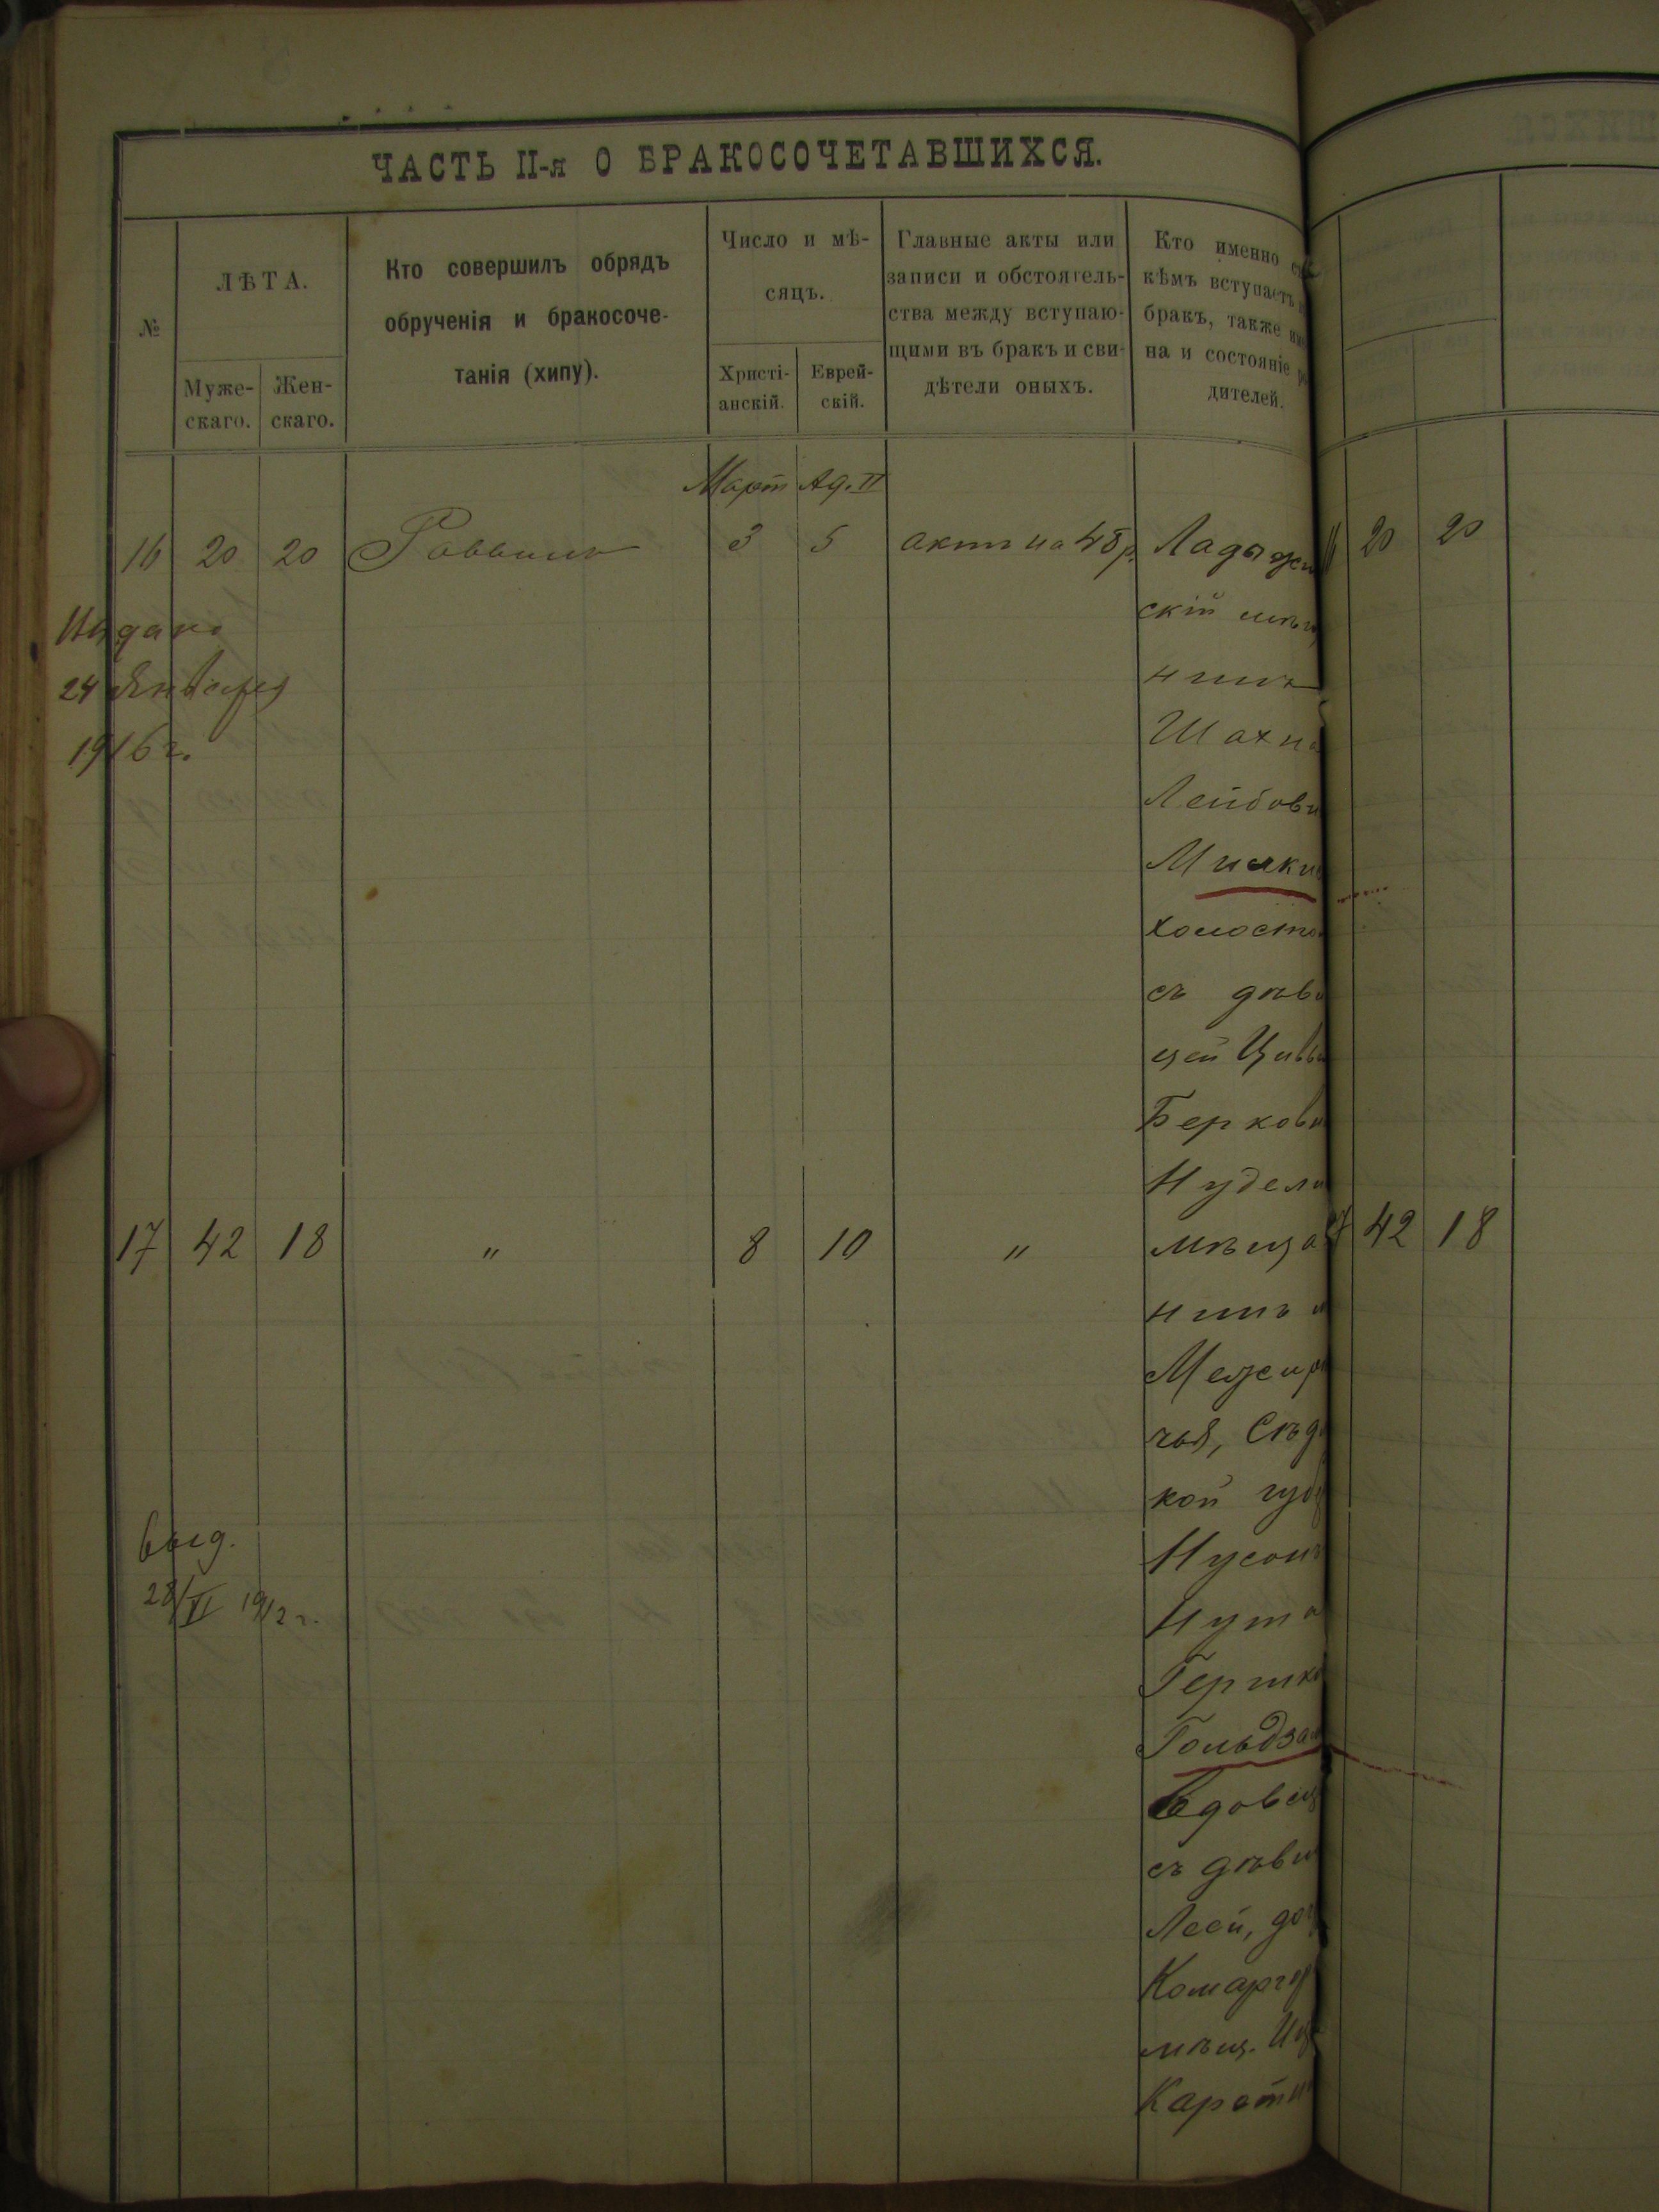 ЧАСТЬ II-я О БРАКОСОЧЕТАВШИХСЯ.
№
ЛѢТА.
Муже-
скаго.
Жен-
скаго.
Кто совершилъ обрядъ
обрученія и бракосоче-
танія (хипу).
Число и мѣ-
сяцъ.
Христі-
анскій.
Еврей-
скій.
Главные акты или
записи и обстоятель-
ства между вступаю-
щими въ бракъ и сви-
дѣтели оныхъ.
Кто именно съ
кѣмъ вступаетъ
бракъ, также
на и состояніе
дителей.
Мартъ Ад. II
16 20 20 Раввинъ 3 5 актъ на 48 р. Ладыжин
скій мѣщ
нинъ
Шахна
Лейбови
холостой
съ дѣви
цей Цивь
Беркови
Нудель
Выдано
24 Января
1916 г.
17 42 18 " 8 10 " мѣща
нинъ м
Межирѣ
чья, Сѣд
кой губ
Нусонъ
Нута
Гершко
Гольдза
вдовец
съ дѣви
Леей, доч
Комаргор
мѣщ.
выд.
28/VI 1912 г.
20 20
42 18